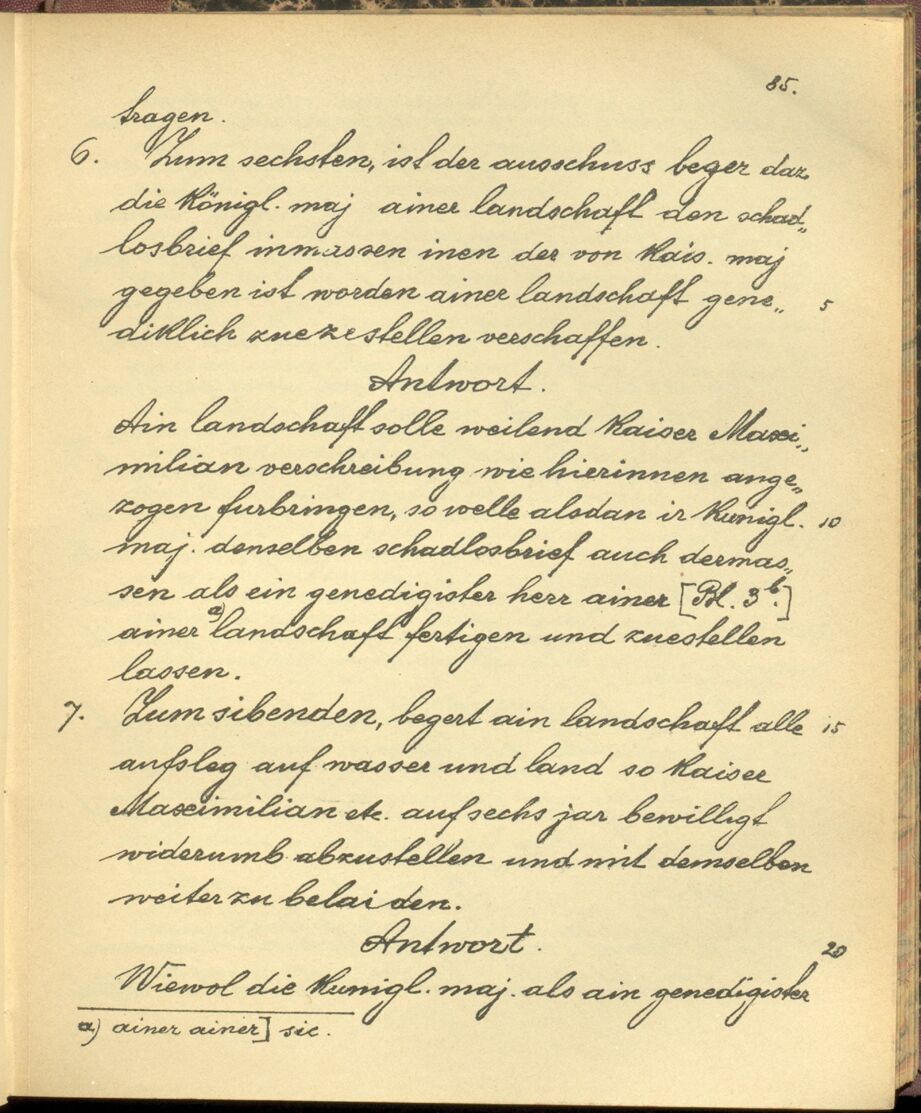 85.
tragen.
6. Zum sechsten, ist der ausschuss beger daz
die Königl. maj ainer landschaft den schad„
losbrief inmassen inen der von Kais. maj
gegeben ist worden ainer landschaft gene„ 5
diklich zuezestellen verschaffen.
Antwort.
Ain landschaft solle weilend Kaiser Maxi„
milian verschreibung wie hierinnen ange„
zogen furbringen, so welle alsdan ir Kunigl. 10
maj. denselben schadlosbrief auch dermas„
sen als ein genedigister herr ainer [Bl. 3b.]
ainer a) landschaft fertigen und zuestellen
lassen.
7. Zum sibenden, begert ain landschaft alle 15
aufsleg auf wasser und land so Kaiser
Maximilian etc. auf sechs jar bewilligt
widerumb abzustellen und mit demselben
weiter zu belaiden.
Antwort. 20
Wiewol die Kunigl. maj. als ain genedigister
a) ainer ainer] sic.